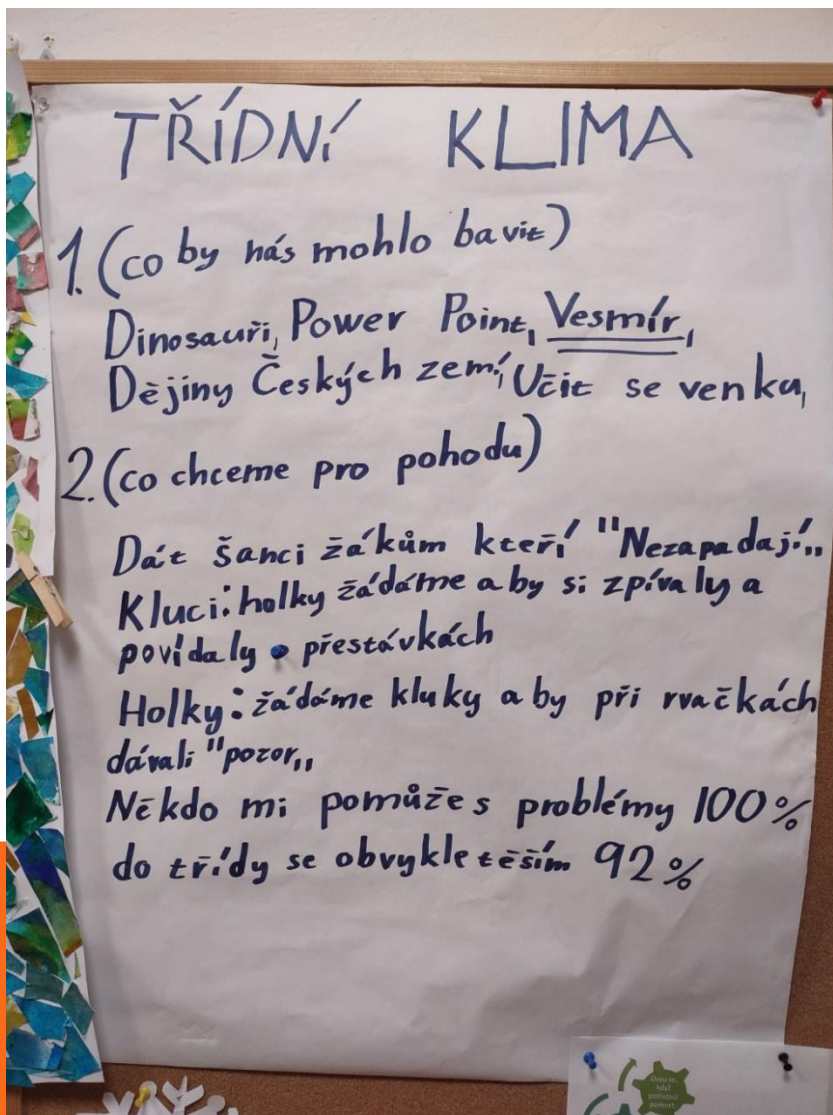 TŘÍDNÍ KLIMA
1. (co by nás mohlo bavit)
Dinosauři, Power Point, Vesmír,
Dějiny Českých zemí, Učit se venku,
2. (co chceme pro pohodu)
Dát šanci žákům kteří "Nezapadají„
Kluci: holky žádáme aby si zpívaly a
povídaly o přestávkách
Holky: žádáme kluky aby při rvačkách
dávali "pozor„
Někdo mi pomůže s problémy 100%
do třídy se obvykle těším 92%
Ozvu se,
když
potřebuji
pomoct